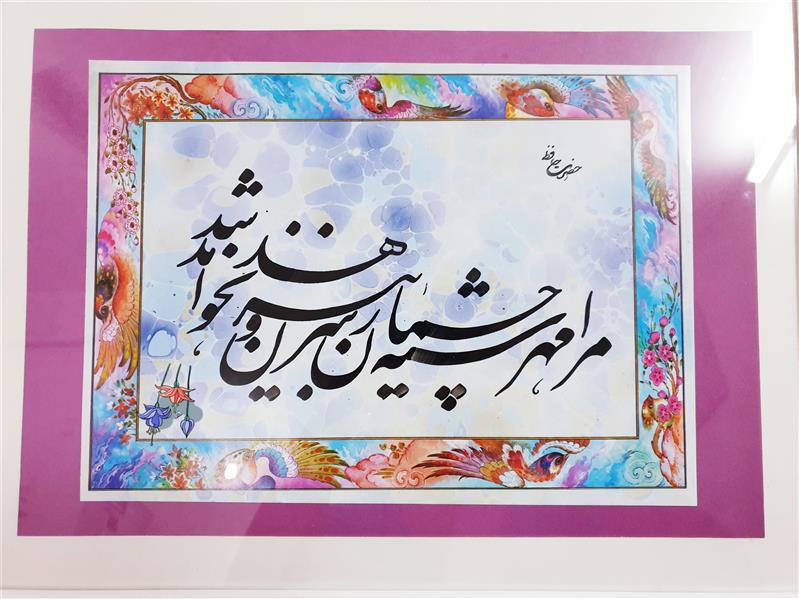 حضرت حافظ
مرا مهر سیه چشمان ز سر بیرون نخواهد شد